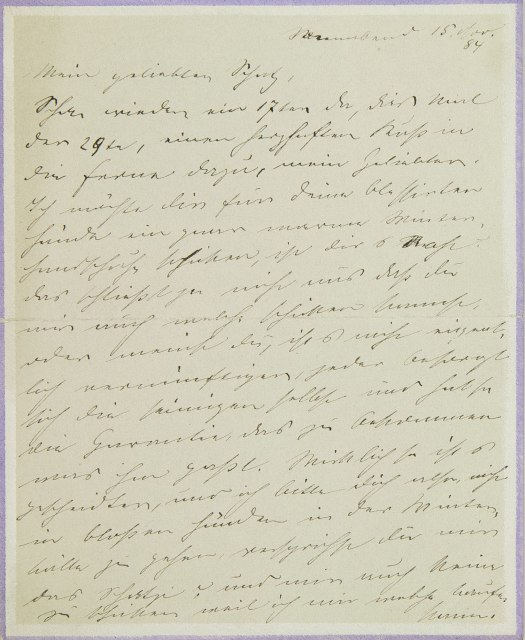 Sonnabend 15. Nov.
84
Mein geliebter Schatz,
Schon wieder ein 17ter da, dies Mal
der 29te, einen herzhaften Kuß in
die Ferne dazu, mein Geliebter.
Ich möchte dir für deine blessirten
Hände ein paar warme Winter-
handschuhe schicken, ist dir s Recht?
das schließt ja nicht aus daß du
mir auch welche schicken kannst,
oder meinst du, ist s nicht eigent-
lich vernünftiger, jeder besorgt
sich die seinigen selbst und hat so
die Garantie, das zu bekommen
was ihm paßt. Wirklich so ist s
gescheidter, und ich bitte dich also, nicht
in bloßen Händen in der Winter-
kälte zu gehen, versprichst du mir
das Schatz? und mir auch keine
zu schicken weil ich mir welche kaufen
kann.